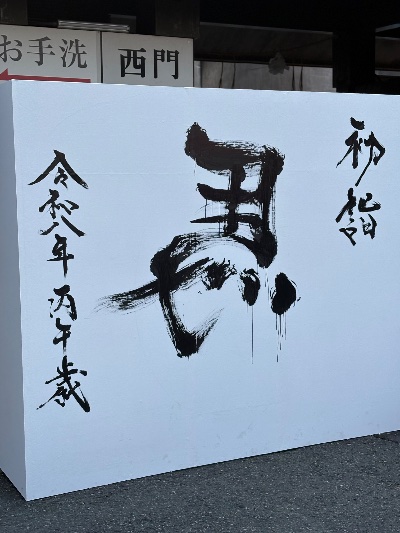 お手洗
西門
初詣
馬
令和八年 丙午歳